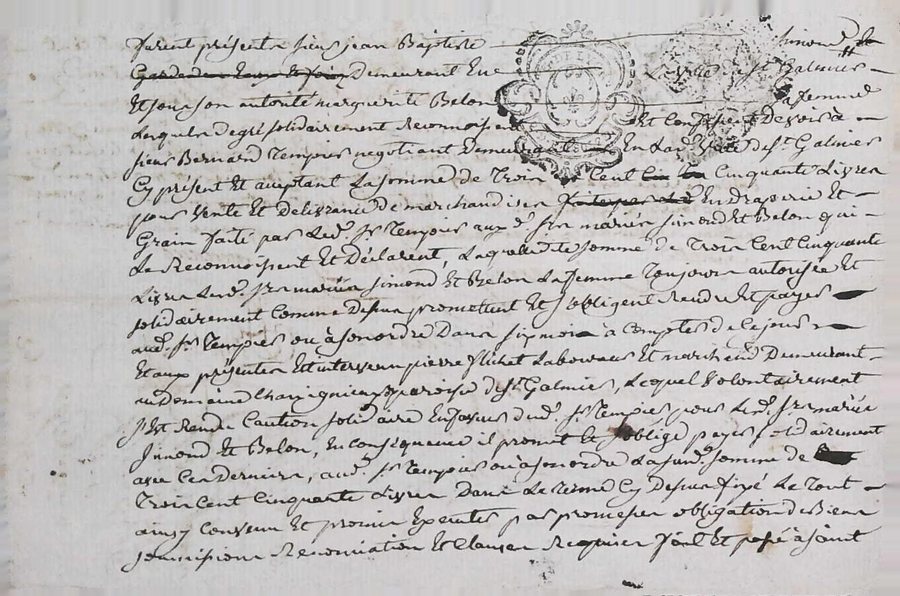 furent présents sieur jean Baptiste simond
Demeurant En La ville de st Galmier
Et sous son autorité marguerite Belon sa femme
Lesquels de gré solidairement Reconnoissent Et Confessent Devoir à
sieur Bernard Tempier negotiant Demeurant En Lad. ville de st Galmier
Cy présent Et aceptant La somme de Trois Cent Cinquante Livres
pour vente Et Délivrance de marchandises En Draperie Et
Grain faite par Led. sr Tempier aux d. srs mariés simond Et Belon qui
Le Reconnoissent Et Déclarent, Laquelle de somme de Trois Cent Cinquante
Livres Lesd. srs mariés simond Et Belon La femme Toujours autorisée Et
solidairement Comme Dessus promettent Et s'obligent rendre Et payer
aud. sr Tempier ou à son ordre Dans six mois à Compter de Ce jour
Et aux présentes Est intervenu pierre Laboureur Et marchand Demeurant
au Domaine paroisse de st Galmier, Lequel volontairement
s'Est Rendu Caution solidaire En faveur dud. sr Tempier pour Lesd. srs mariés
simond Et Belon, En Conséquence il promet Et s'oblige payer solidairement
avec Ces Derniers, aud. sr Tempier ou à son ordre La susd. somme de
Trois Cent Cinquante Livres Dans Le Terme Cy Dessus fixé Le Tout
ainsy Convenu Et promis Executer par promesses obligation de Biens
soumissions Renonciation Et Clauses Requises fait Et passé à saint